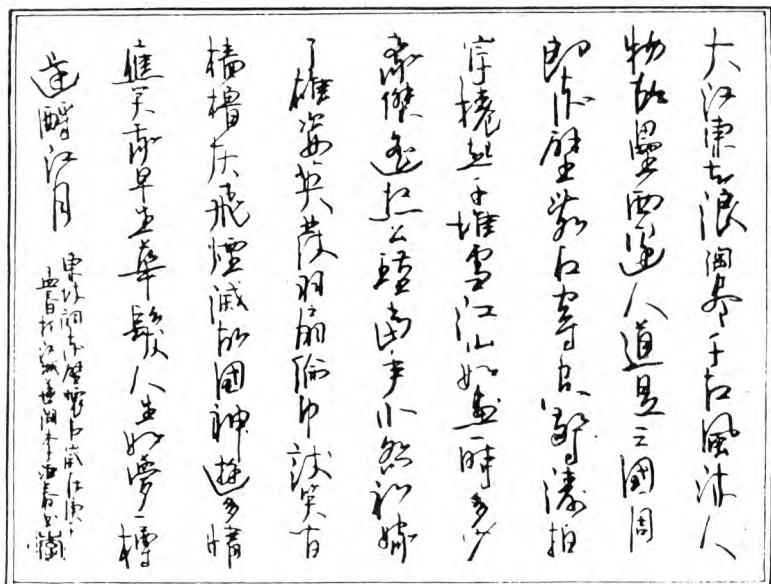 大江東去浪淘盡千古風流人
物故壘西邊人道是三國周
郎赤壁亂石穿空驚濤拍
岸捲起千堆雪江山如畫一時多少
豪傑遙想公瑾當年小喬初嫁
了雄姿英發羽扇綸巾談笑間
檣櫓灰飛煙滅故國神遊多情
應笑我早生華髮人生如夢一樽
還酹江月
東坡詞赤壁懷古歲在庚午
孟春於江城